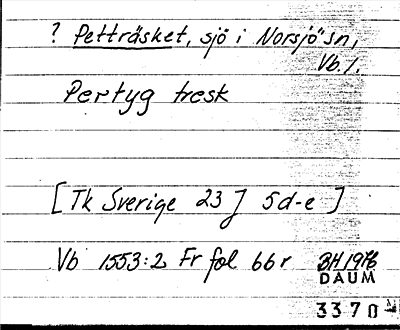 ? Petträsket, sjö i Norsjö sn,
Vb.l.
Pertyg tresk
[Tk Sverige 23 J 5d-e ]
Vb 1553:2 Fr fol 66r BH 1976
DAUM
3370